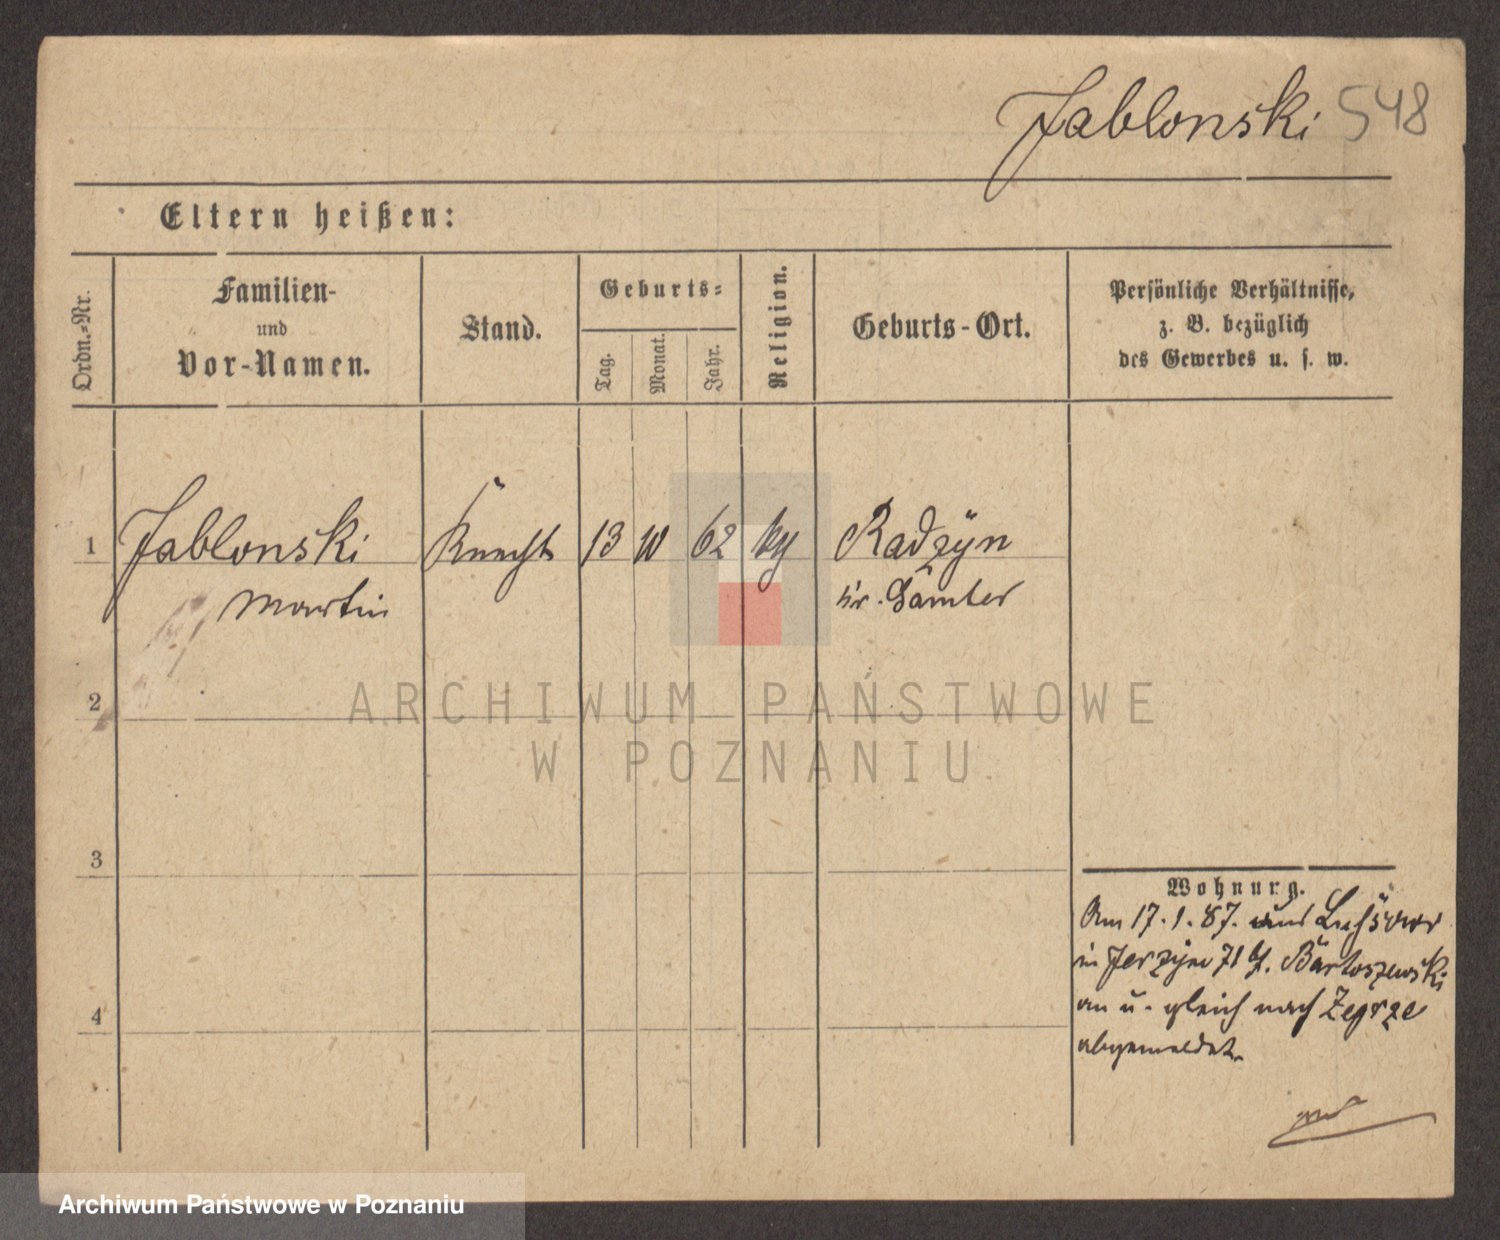 Jablonski 548
Eltern heißen:
Ordn.-Nr.
Familien-
und
Vor-Namen.
Stand.
Geburts-
Tag.
Monat.
Jahr.
Religion.
Geburts-Ort.
Persönliche Verhältnisse,
z. B. bezüglich
des Gewerbes u. s. w.
1 Jablonski Knecht 13 62 Radzyn
Martin Kr. Samter
2
ARCHIWUM PAŃSTWOWE
W POZNANIU
3
4
Wohnung.
Am 17.1.87. aus
in Jerzyce 71 b. Bartoszewski
an u. gleich nach Zegrze
abgemeldet.
Archiwum Państwowe w Poznaniu